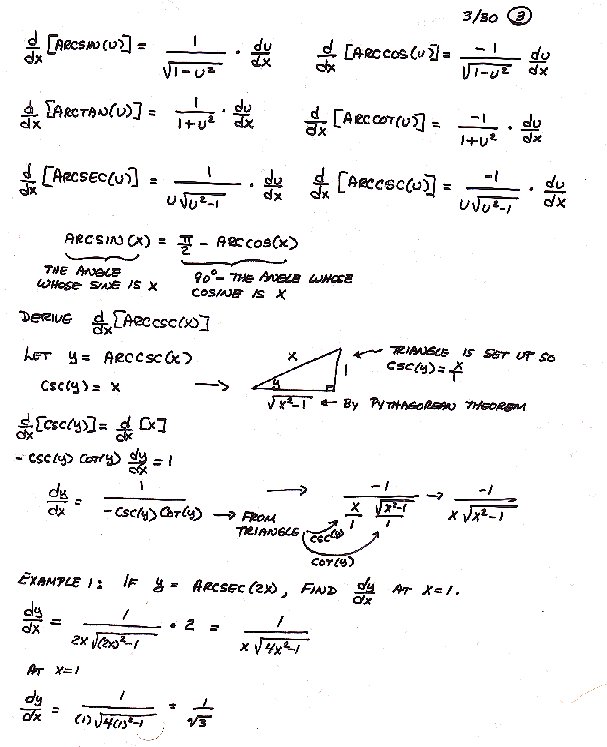 3/30 (3)
d/dx [ARCSIN(U)] = 1/√(1-U²) · du/dx    d/dx [ARCCOS(U)] = -1/√(1-U²) du/dx
d/dx [ARCTAN(U)] = 1/(1+U²) · du/dx    d/dx [ARCCOT(U)] = -1/(1+U²) · du/dx
d/dx [ARCSEC(U)] = 1/(U√(U²-1)) · du/dx    d/dx [ARCCSC(U)] = -1/(U√(U²-1)) · du/dx
ARCSIN(X) = π/2 - ARCCOS(X)
THE ANGLE WHOSE SINE IS X    90° - THE ANGLE WHOSE COSINE IS X
DERIVE d/dx [ARCCSC(X)]
LET y = ARCCSC(X)    X    1    y    ← TRIANGLE IS SET UP SO CSC(y) = X/1
CSC(y) = X →    √(X²-1) ← BY PYTHAGOREAN THEOREM
d/dx [CSC(y)] = d/dx [X]
-CSC(y) COT(y) dy/dx = 1
dy/dx = 1/(-CSC(y) COT(y)) → FROM TRIANGLE    → -1/(X/1 √(X²-1)/1) → -1/(X√(X²-1))
CSC(y)
COT(y)
EXAMPLE 1: IF y = ARCSEC(2X), FIND dy/dx AT X=1.
dy/dx = 1/(2X√((2X)²-1)) • 2 = 1/(X√(4X²-1))
AT X=1
dy/dx = 1/((1)√(4(1)²-1)) = 1/√3